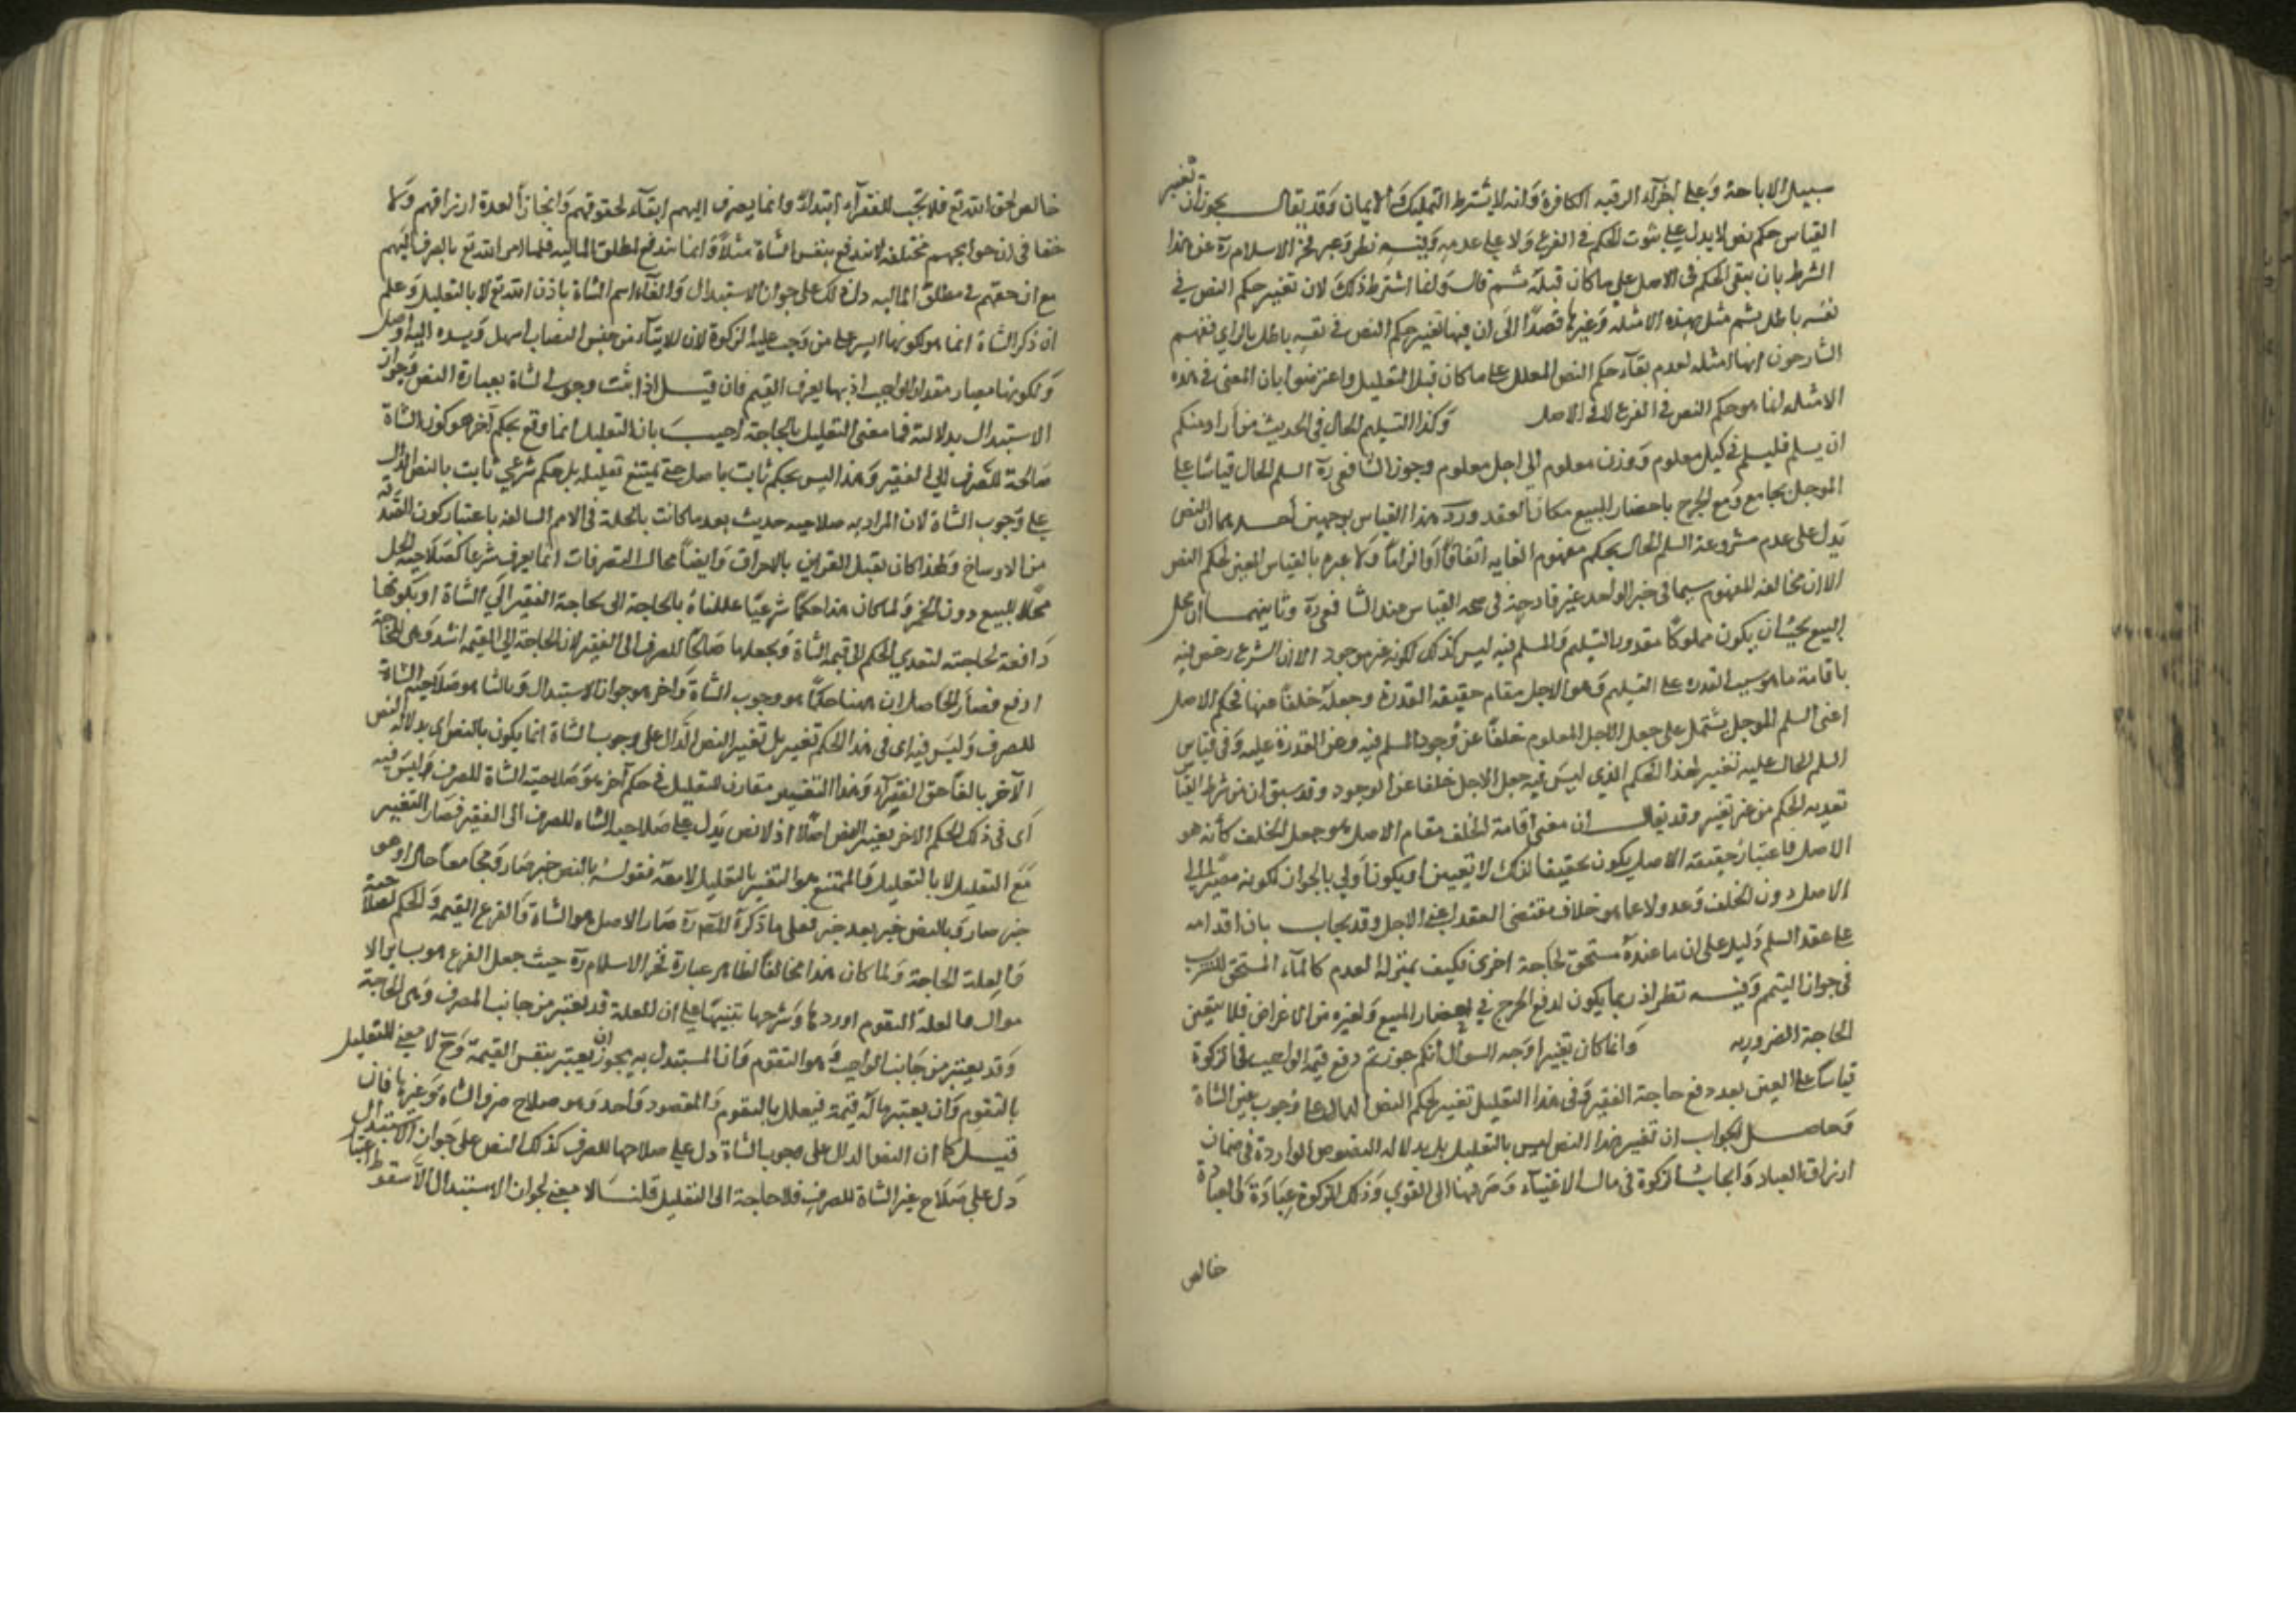 سبيل الاباحة وعلى اجزاء الرقبه الكافرة وانه لا يشترط التمليك والايمان وقد يقال يجوز ان تغير
القياس حكم نص لا يدل على ثبوت الحكم في الفرع ولا على عدمه وفيه نظر وعبر فخر الاسلام ره عن هذا
الشرط بان يبقى الحكم في الاصل على ما كان قبله ثم قال وانما اشترط ذلك لان تغيير حكم النص في
نفسه باطل ثم مثل بهذه الامثلة وغيرها قصدا الى ان فيها تغيير حكم النص في نفسه باطل بالراي ففهم
الشارحون انها امثله لعدم بقآء حكم النص المعلل على ما كان قبل التعليل واعترضوا بان المعنى في هذه
الامثله انما هو حكم النص في الفرع لا في الاصل وكذا التسليم الحال في الحديث من اراد منكم
ان يسلم فليسلم في كيل معلوم ووزن معلوم الى اجل معلوم وجوز الشافعي ره السلم الحال قياسا على
الموجل بجامع دفع الحرج باحضار المبيع مكان العقد ورد هذا القياس بوجهين احدهما ان النص
يدل على عدم مشروعية السلم الحال بحكم مفهوم الغايه اتفاقا او الزاما ولا عبره بالقياس المغير لحكم النص
الا ان مخالفه المفهوم سيما في خبر الواحد غير قادحة في صحه القياس عند الشافعي ره وثانيهما ان محل
البيع يجب ان يكون مملوكا مقدور التسليم والمسلم فيه ليس كذلك لكونه غير موجود الا ان الشرع رخص فيه
باقامة ما هو سبب القدره على التسليم وهو الاجل مقام حقيقه القدرة وجعله خلفا عنها فحكم الاصل
اعنى السلم الموجل يشتمل على جعل الاجل المعلوم خلفا عن وجود المسلم فيه وعن القدرة عليه وفي قياس
السلم الحال عليه تغيير لهذا الحكم الذي ليس فيه جعل الاجل خلفا عن الوجود وقد سبق ان من شرط القياس
تعديه الحكم من غير تغيير وقد يقال ان معنى اقامة الخلف مقام الاصل هو جعل الخلف كأنه هو
الاصل فاعتبار حقيقه الاصل يكون تحقيقا لذلك لا تغييرا ويكون اولى بالجواز لكونه مصيرا الى
الاصل دون الخلف وعدولا عما هو خلاف مقتضى العقد اعني الاجل وقد يجاب بان اقدامه
على عقد السلم دليل على ان ما عنده مستحق لحاجة اخرى فكيف بمنزلة العدم كالمآء المستحق للشرب
في جواز التيمم وفيه نظر اذ ربما يكون لدفع الحرج في احضار المبيع ولغيره من الاغراض فلا يتعين
الحاجة الضروريه وانما كان تغييرا وجه السوال انكم جوزتم دفع قيمة الواجب في الزكوة
قياسا على العين بعد دفع حاجة الفقير وفي هذا التعليل تغيير لحكم النص الدال على وجوب عين الشاة
وحاصل الجواب ان تغيير هذا النص ليس بالتعليل بل بدلاله النصوص الواردة في ضمان
ارزاق العباد وايجاب الزكوة في مال الاغنياء وصرفها الى الفقير وذلك الزكوة عبادة والعبادة
خالص
خالص حق الله تع فلا تجب للفقرآء ابتدآء وانما يصرف اليهم ايفآء لحقوقهم وانجازا لعدة ارزاقهم ولا
خفا في ان حوايجهم مختلفه لا تندفع بنفس الشاة مثلا وانما تندفع بمطلق الماليه فلما امر الله تع بالصرف اليهم
مع ان حقهم في مطلق الماليه دل ذلك على جواز الاستبدال والغآء اسم الشاة باذن الله تع لا بالتعليل وعلم
ان ذكر الشاة انما هو لكونها ايسر على من وجب عليه الزكوة لان الايتآء من جنس النصاب اسهل ويده اليه اوصل
ولكونها معيار مقدار الواجب اذ بها يعرف القيم فان قيل اذا ثبت وجوب الشاة بعبارة النص وجواز
الاستبدال بدلالته فما معنى التعليل بالحاجة اجيب بان التعليل انما وقع بحكم آخر هو كون الشاة
صالحة للصرف الى الفقير وهذا ليس بحكم ثابت باصل حتى يمتنع تعليله بل حكم شرعي ثابت بالنص الدال
على وجوب الشاة لان المراد به صلاحيه حديث بعد ما كانت باطلة في الامم السالفه باعتبار كون الصدقه
من الاوساخ ولهذا كان تقبل القرابين بالاحراق وايضا محال التصرفات انما يعرف شرعا كصلاحية الخل
محلا للبيع دون الخمر ولما كان هذا حكما شرعيا عللناه بالحاجة اى بحاجة الفقير الى الشاة او بكونها
دافعة لحاجته لتعدي الحكم الى قيمة الشاة وبجعلها صالحا للصرف الى الفقير لان الحاجة الى القيمه اشد وهي للحاجة
ادفع فصار الحاصل ان هنا حكما هو وجوب الشاة واخر هو جواز الاستبدال وثالثا هو صلاحية الشاة
للصرف وليس فيه اى في هذا الحكم تغيير بل تغيير النص الدال على وجوب الشاة انما يكون بالنص اى بدلالة النص
الآخر بالغا حق الفقرآء وهذا التغيير مقارن للتعليل في حكم آخر هو صلاحية الشاة للصرف وليس فيه
اى في ذلك الحكم الاخر تغيير النص اصلا اذ لا نص يدل على صلاحيه الشاه للصرف الى الفقير فصار التغيير
مع التعليل لا بالتعليل والممتنع هو التغيير بالتعليل لا معه فقوله بالنص خبر صار ومجامعا حال او هو
خبر صار وبالنص خبر بعد خبر فعلى ما ذكره المص ره صار الاصل هو الشاة والفرع القيمه والحكم الصلاحية
والعلة الحاجة ولما كان هذا مخالفا لظاهر عبارة فخر الاسلام ره حيث جعل الفرع هو ساير الا
موال والعلة التقوم اوردها وشرحها تنبيها على ان العلة قد يعتبر من جانب المصرف وهي الحاجة
وقد يعتبر من جانب الواجب وهو التقوم فان المستبدل به يجوز ان يعتبر بنفس القيمة وح لا معنى للتعليل
بالتقوم وان يعتبر ما له قيمة فيعلل بالتقوم والمقصود واحد وهو صلاح صرف الشاه وغيرها فان
قيل كما ان النص الدال على وجوب الشاة دل على صلاحها للصرف كذلك النص على جواز الاستبدال
دل على صلاح غير الشاة للصرف فلا حاجة الى التعليل قلنا لا معنى لجواز الاستبدال الا سقوط اعتبا